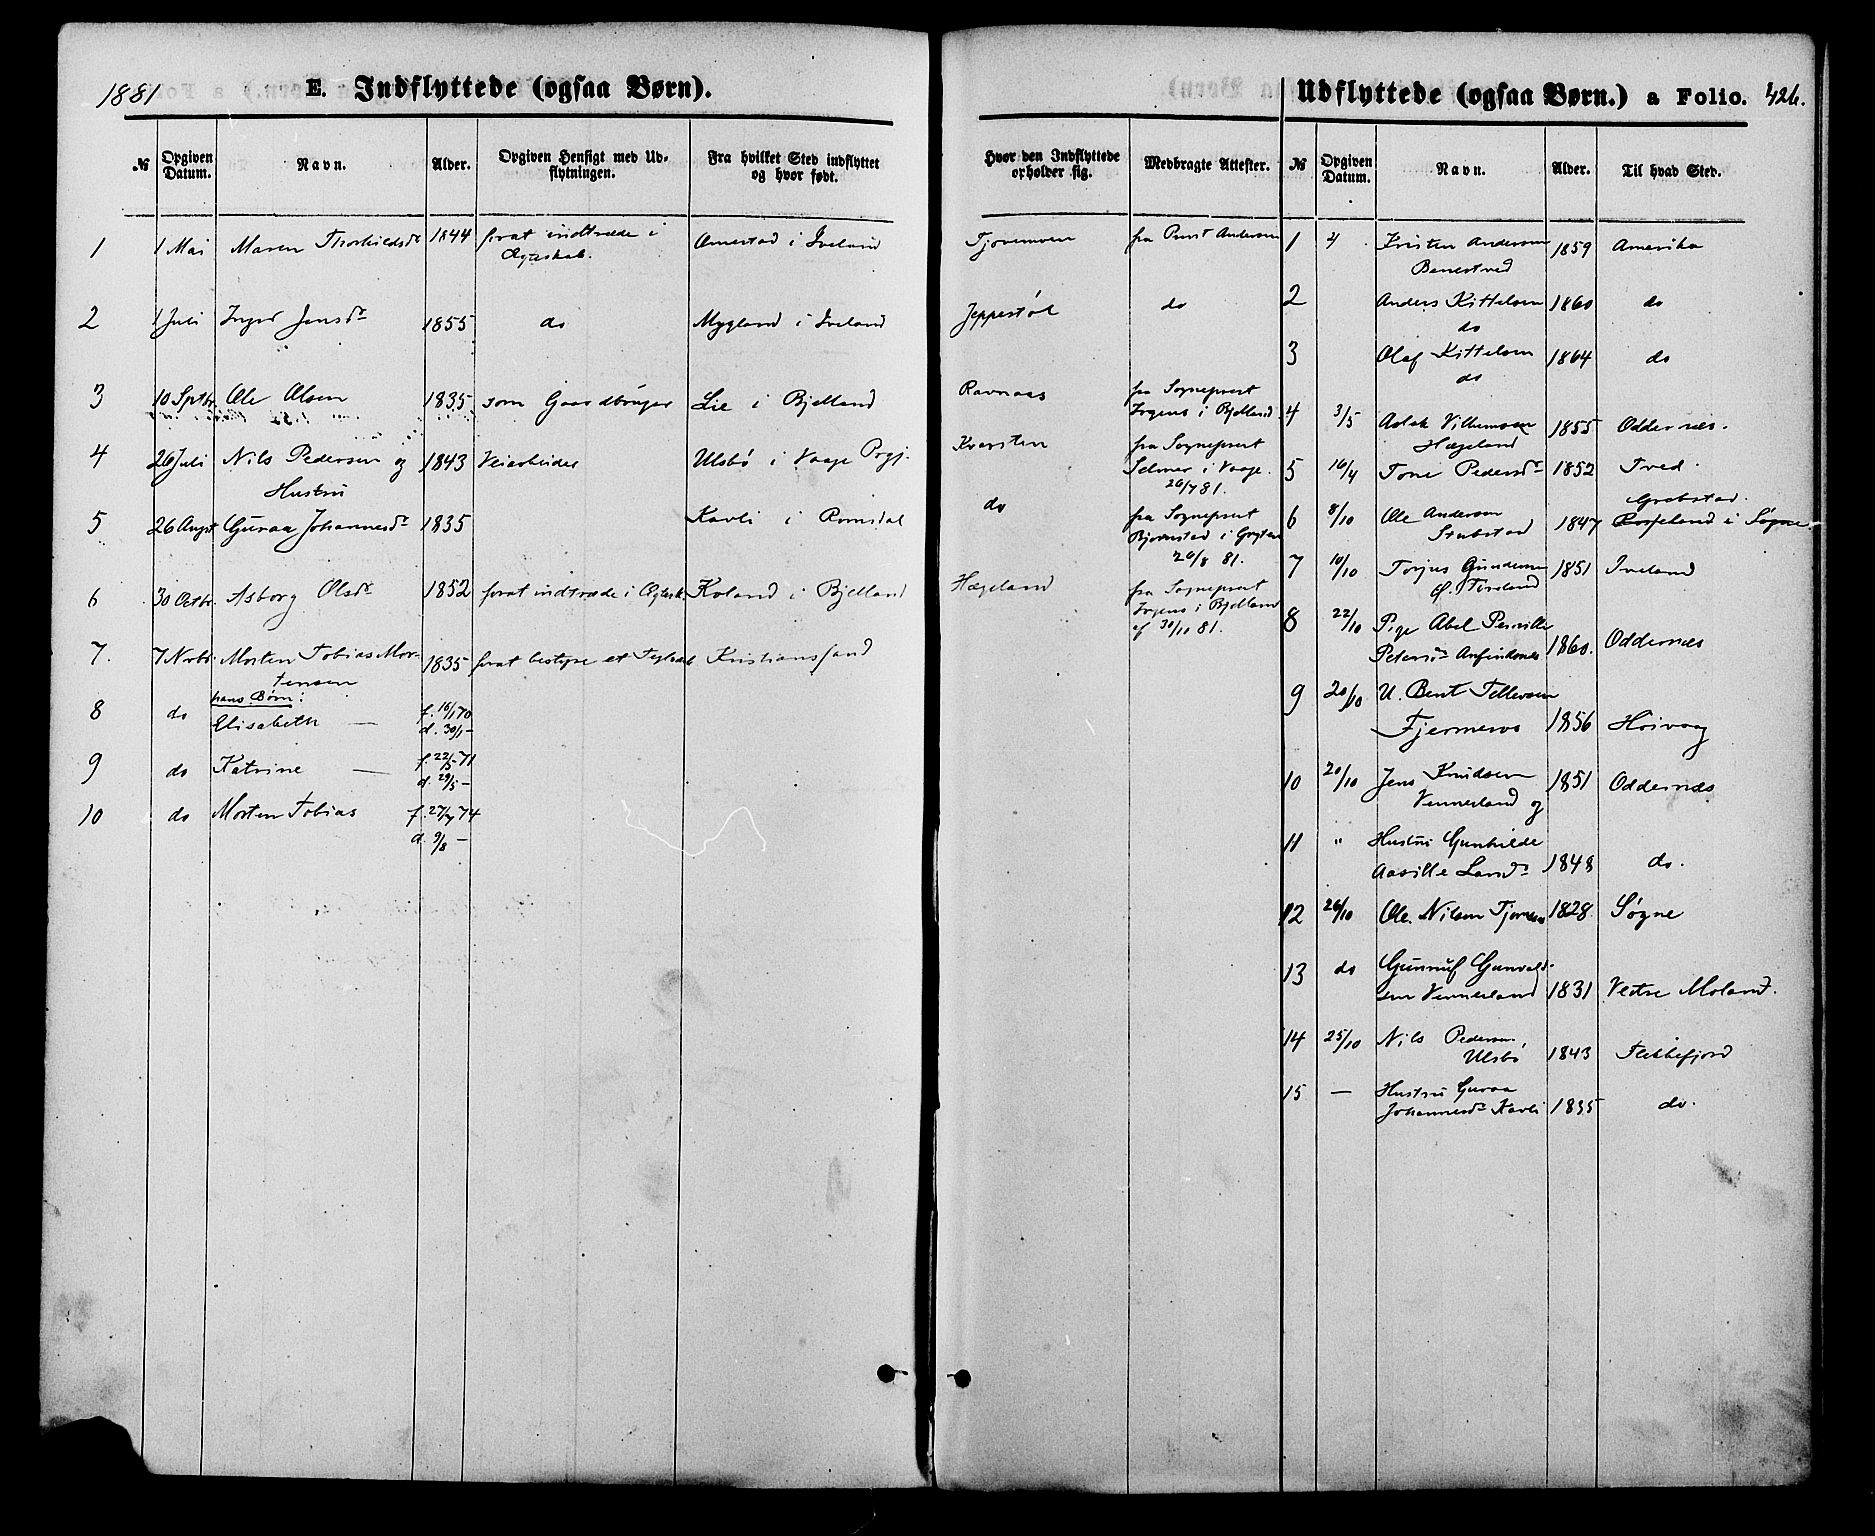 1881
E. Indflyttede (ogsaa Børn).
№ Opgiven Datum. Navn. Alder. Opgiven Hensigt med Udflytningen. Fra hvilket Sted indflyttet og hvor født.
1 1 Mai Maren Thorkildsd. 1844 forat indtræde i Omestad i Iveland
Ægteskab.
2 1 Juli Inger Jensd. 1855 do Mygland i Iveland
3 10 Sptbr. Ole Olsen 1835 som Gaardbruger Lie i Bjelland
4 26 Juli Nils Pedersen og 1843 Veiarbeider Ulsbø i Vaage Prgj.
Hustru
5 26 Augst Guraa Johannesd. 1835 Kavli i Romsdal
6 30 Octbr. Asborg Olsd. 1852 forat indtræde i Ægtesk. Koland i Bjelland
7. 7 Novbr Morten Tobias Mor- 1835 forat bestyre et Kristianssand
tensen
hans Børn:
8 do Elisabeth — f. 16/1 70
d. 30/1 —
9 do Katrine — f. 22/5 71
d. 29/5 —
10 do Morten Tobias f. 27/7 74
d. 9/8 —
Udflyttede (ogsaa Børn.) a Folio. 426.
Hvor den Indflyttede opholder sig. Medbragte Attester. № Opgiven Datum. Navn. Alder. Til hvad Sted.
Tjovemoen fra Prest Andersen 1 4 Kristen Andersen 1859 Amerika
Benestved
Jeppestøl do 2 Anders Kittelsen 1860 do
do
3 Olaf Kittelsen 1864 do
do
Ravnaas fra Sogneprest
Irgens i Bjelland 4 3/5 Aslak Vilhemsen 1855 Oddernæs.
Hægeland
Kvarsten fra Sogneprest
Selmer i Vaage. 5 16/4 Tone Pedersd. 1852 Tved.
26/7 81.
do fra Sogneprest 6 8/10 Ole Andersen 1847 i Søgne.
Stubstad
Bjørnstad i Gryten
26/8 81. 7 10/10 Torjus Gundersen 1851 Iveland
Hægeland fra Sogneprest
Irgens i Bjelland
af 30/10 81. 8 22/10 Pige Abel Pernille
Petersd. 1860. Oddernæs
9 20/10 U. Bent Tellevsen
Fjermeros 1856 Høivaag
10 20/10 Jens Knudsen 1851 Oddernæs
Vennesland og
11 " Hustru Gunhilde
Aasille Larsd. 1848 do.
12 26/10 Ole Nilsen 1828. Søgne
13 do Gunnuf Gunvald-
sen Vennesland 1831 Vestre Moland.
14 25/10 Nils Pedersen,
Ulsbø 1843 Flekkefjord
15 — Hustru Guraa
Johannesd. Kavli 1835 do.